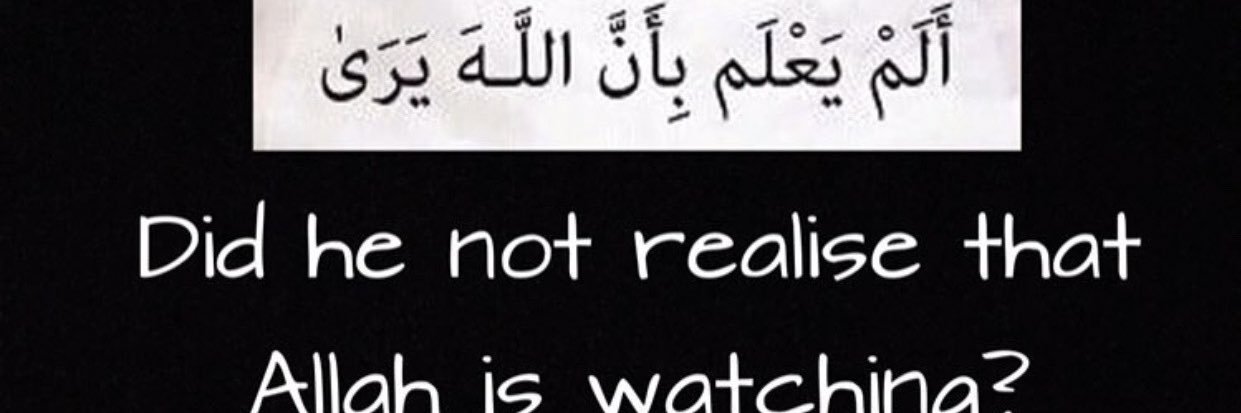 أَلَمْ يَعْلَم بِأَنَّ اللَّـهَ يَرَىٰ
Did he not realise that
Allah is watching?